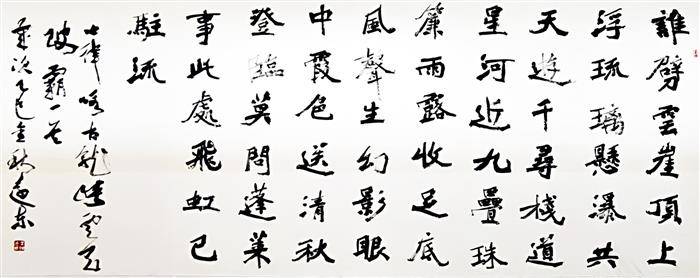 誰劈雲崖頂上
浮琉璃懸瀑共
天遊千尋棧道
星河近九疊珠
簾雨露收足底
風聲生幻影眼
中霞色送清秋
登臨莫問蓬萊
事此處飛虹已
駐流
七律咏古龍峽雲天
玻霸一首
歲次乙巳金秋